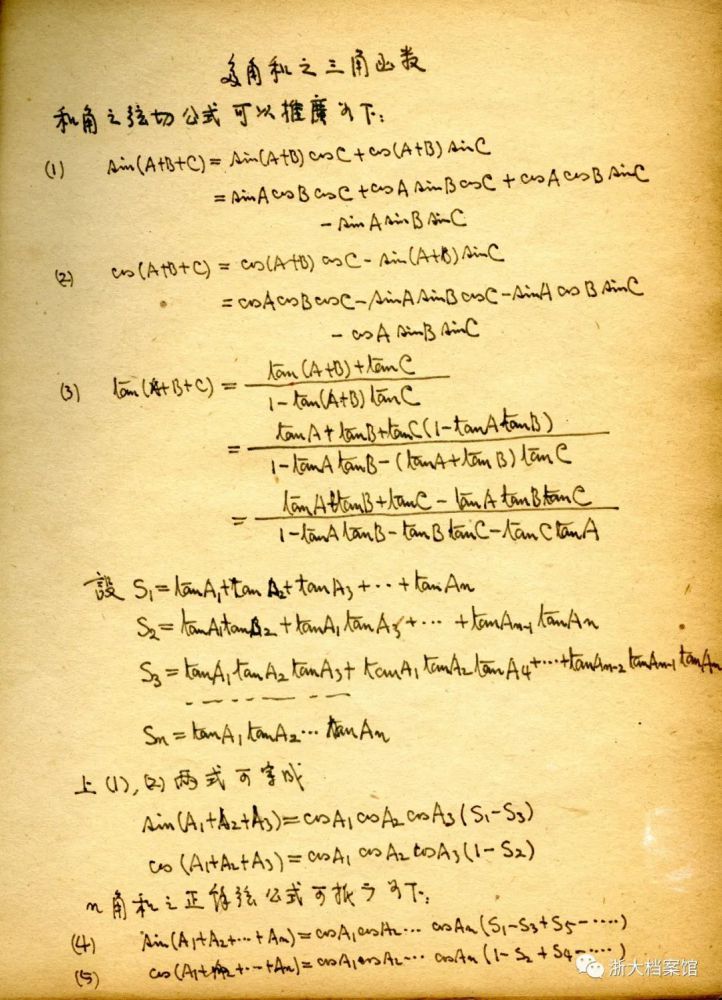 多角和之三角函数
和角之弦切公式可以推廣如下:
(1) sin(A+B+C) = sin(A+B) cosC + cos(A+B) sinC
= sinA cosB cosC + cosA sinB cosC + cosA cosB sinC
- sinA sinB sinC
(2) cos(A+B+C) = cos(A+B) cosC - sin(A+B) sinC
= cosA cosB cosC - sinA sinB cosC - sinA cosB sinC
- cosA sinB sinC
(3) tan(A+B+C) = \frac{tan(A+B)+tanC}{1-tan(A+B) tanC}
= \frac{tanA+tanB+tanC(1-tanA tanB)}{1-tanA tanB-(tanA+tanB) tanC}
= \frac{tanA+tanB+tanC-tanA tanB tanC}{1-tanA tanB-tanB tanC-tanC tanA}
設 S₁=tanA₁+tanA₂+tanA₃+···+tanAn
S₂=tanA₁tanA₂+tanA₁tanA₃+···+tanAn-1 tanAn
S₃=tanA₁tanA₂tanA₃+tanA₁tanA₂tanA₄+···+tanAn-2 tanAn-1 tanAn
Sn=tanA₁tanA₂···tanAn
上(1),(2)两式可写成
sin(A₁+A₂+A₃)=cosA₁cosA₂cosA₃(S₁-S₃)
cos(A₁+A₂+A₃)=cosA₁cosA₂cosA₃(1-S₂)
n角和之正餘弦公式可推广如下:
(4) sin(A₁+A₂+···+An)=cosA₁cosA₂···cosAn(S₁-S₃+S₅-····)
(5) cos(A₁+A₂+···+An)=cosA₁cosA₂···cosAn(1-S₂+S₄-····)
浙大档案馆